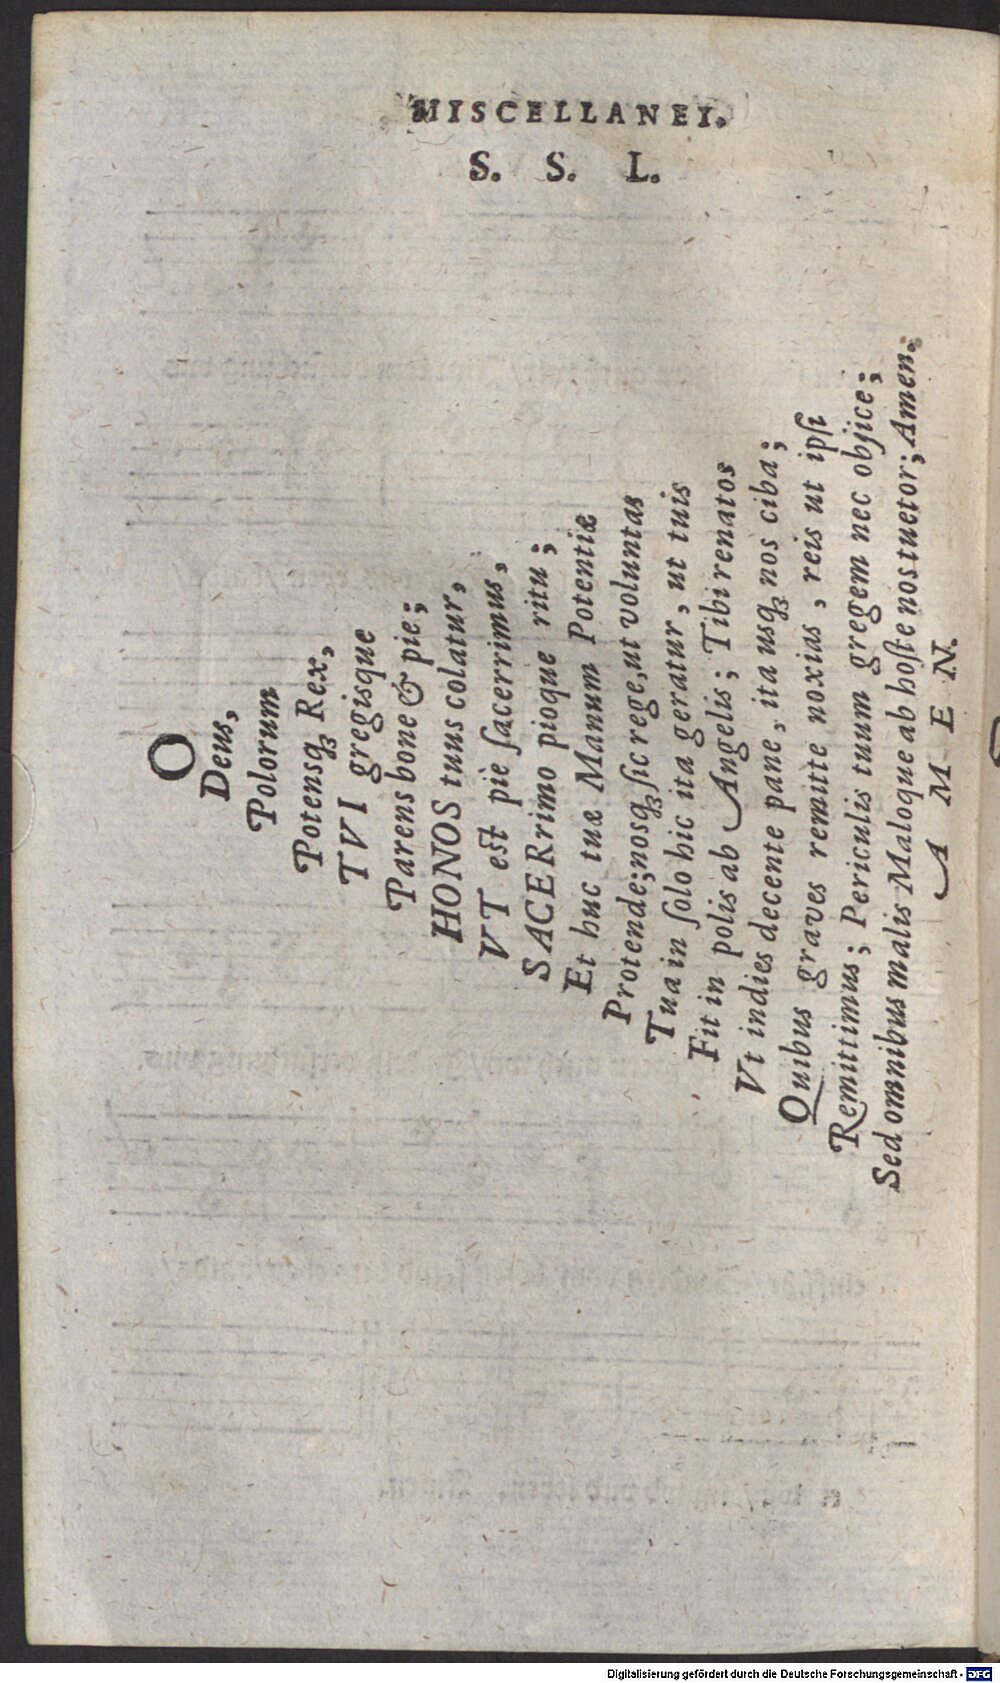 MISCELLANEI.
S. S. L.
O
Deus,
Polorum
Potensqꝫ Rex,
TVI gregisque
Parens bone & pie;
HONOS tuus colatur,
VT est pie ſacerrimus,
SACERrimo pioque ritu;
Et huc tuæ Manum Potentiæ
Protende; nosqꝫ ſic rege, ut voluntas
Tua in ſolo hic ita geratur, ut tuis
Fit in polis ab Angelis; Tibi renatos
Vt indies decente pane, ita usqꝫ nos ciba;
Quibus graves remitte noxias, reis ut ipſi
Remittimus; Periculis tuum gregem nec objice;
Sed omnibus malis Maloque ab hoſte nos tuetor; Amen.
AMEN.
Digitalisierung gefördert durch die Deutsche Forschungsgemeinschaft - DFG